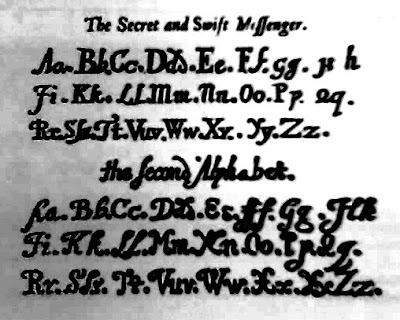 The Secret and Swift Meſſenger.
Aa. Bb. Cc. Ddd. Ee. Ff. gg. H h
Ji. Kk. Ll. Mm. Nn. Oo. Pp. Qq.
Rr. Sſs. Tt. Vuv. Ww. Xx. Yy. Zz.
the ſecond Alphabet.
Aa. Bb. Cc. Ddd. Ee. Ff. Gg. Hh
Ji. Kk. Ll. Mm. Nn. Oo. Pp. Qq.
Rr. Sſs. Tt. Vuv. Ww. Xx. Yy. Zz.